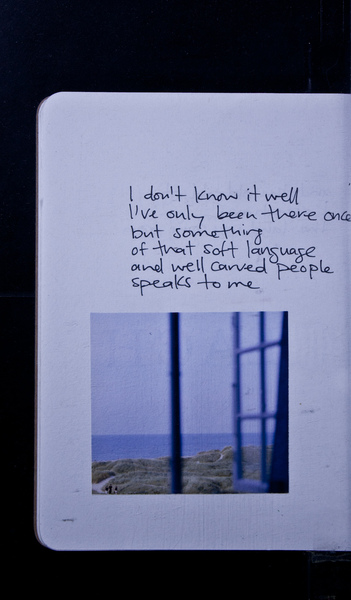 I don't know it well
I've only been there once
but something
of that soft language
and well carved people
speaks to me